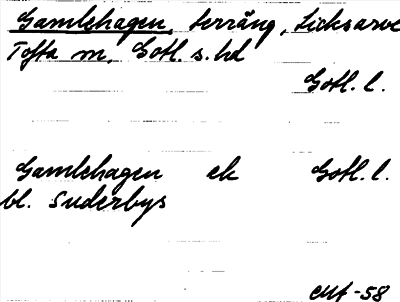 Gamlehagen, terräng, Licksarve
Tofta sn, Gotl. s. hd
Gotl. l.
Gamlehagen ek Gotl. l.
bl. Suderbys
-58